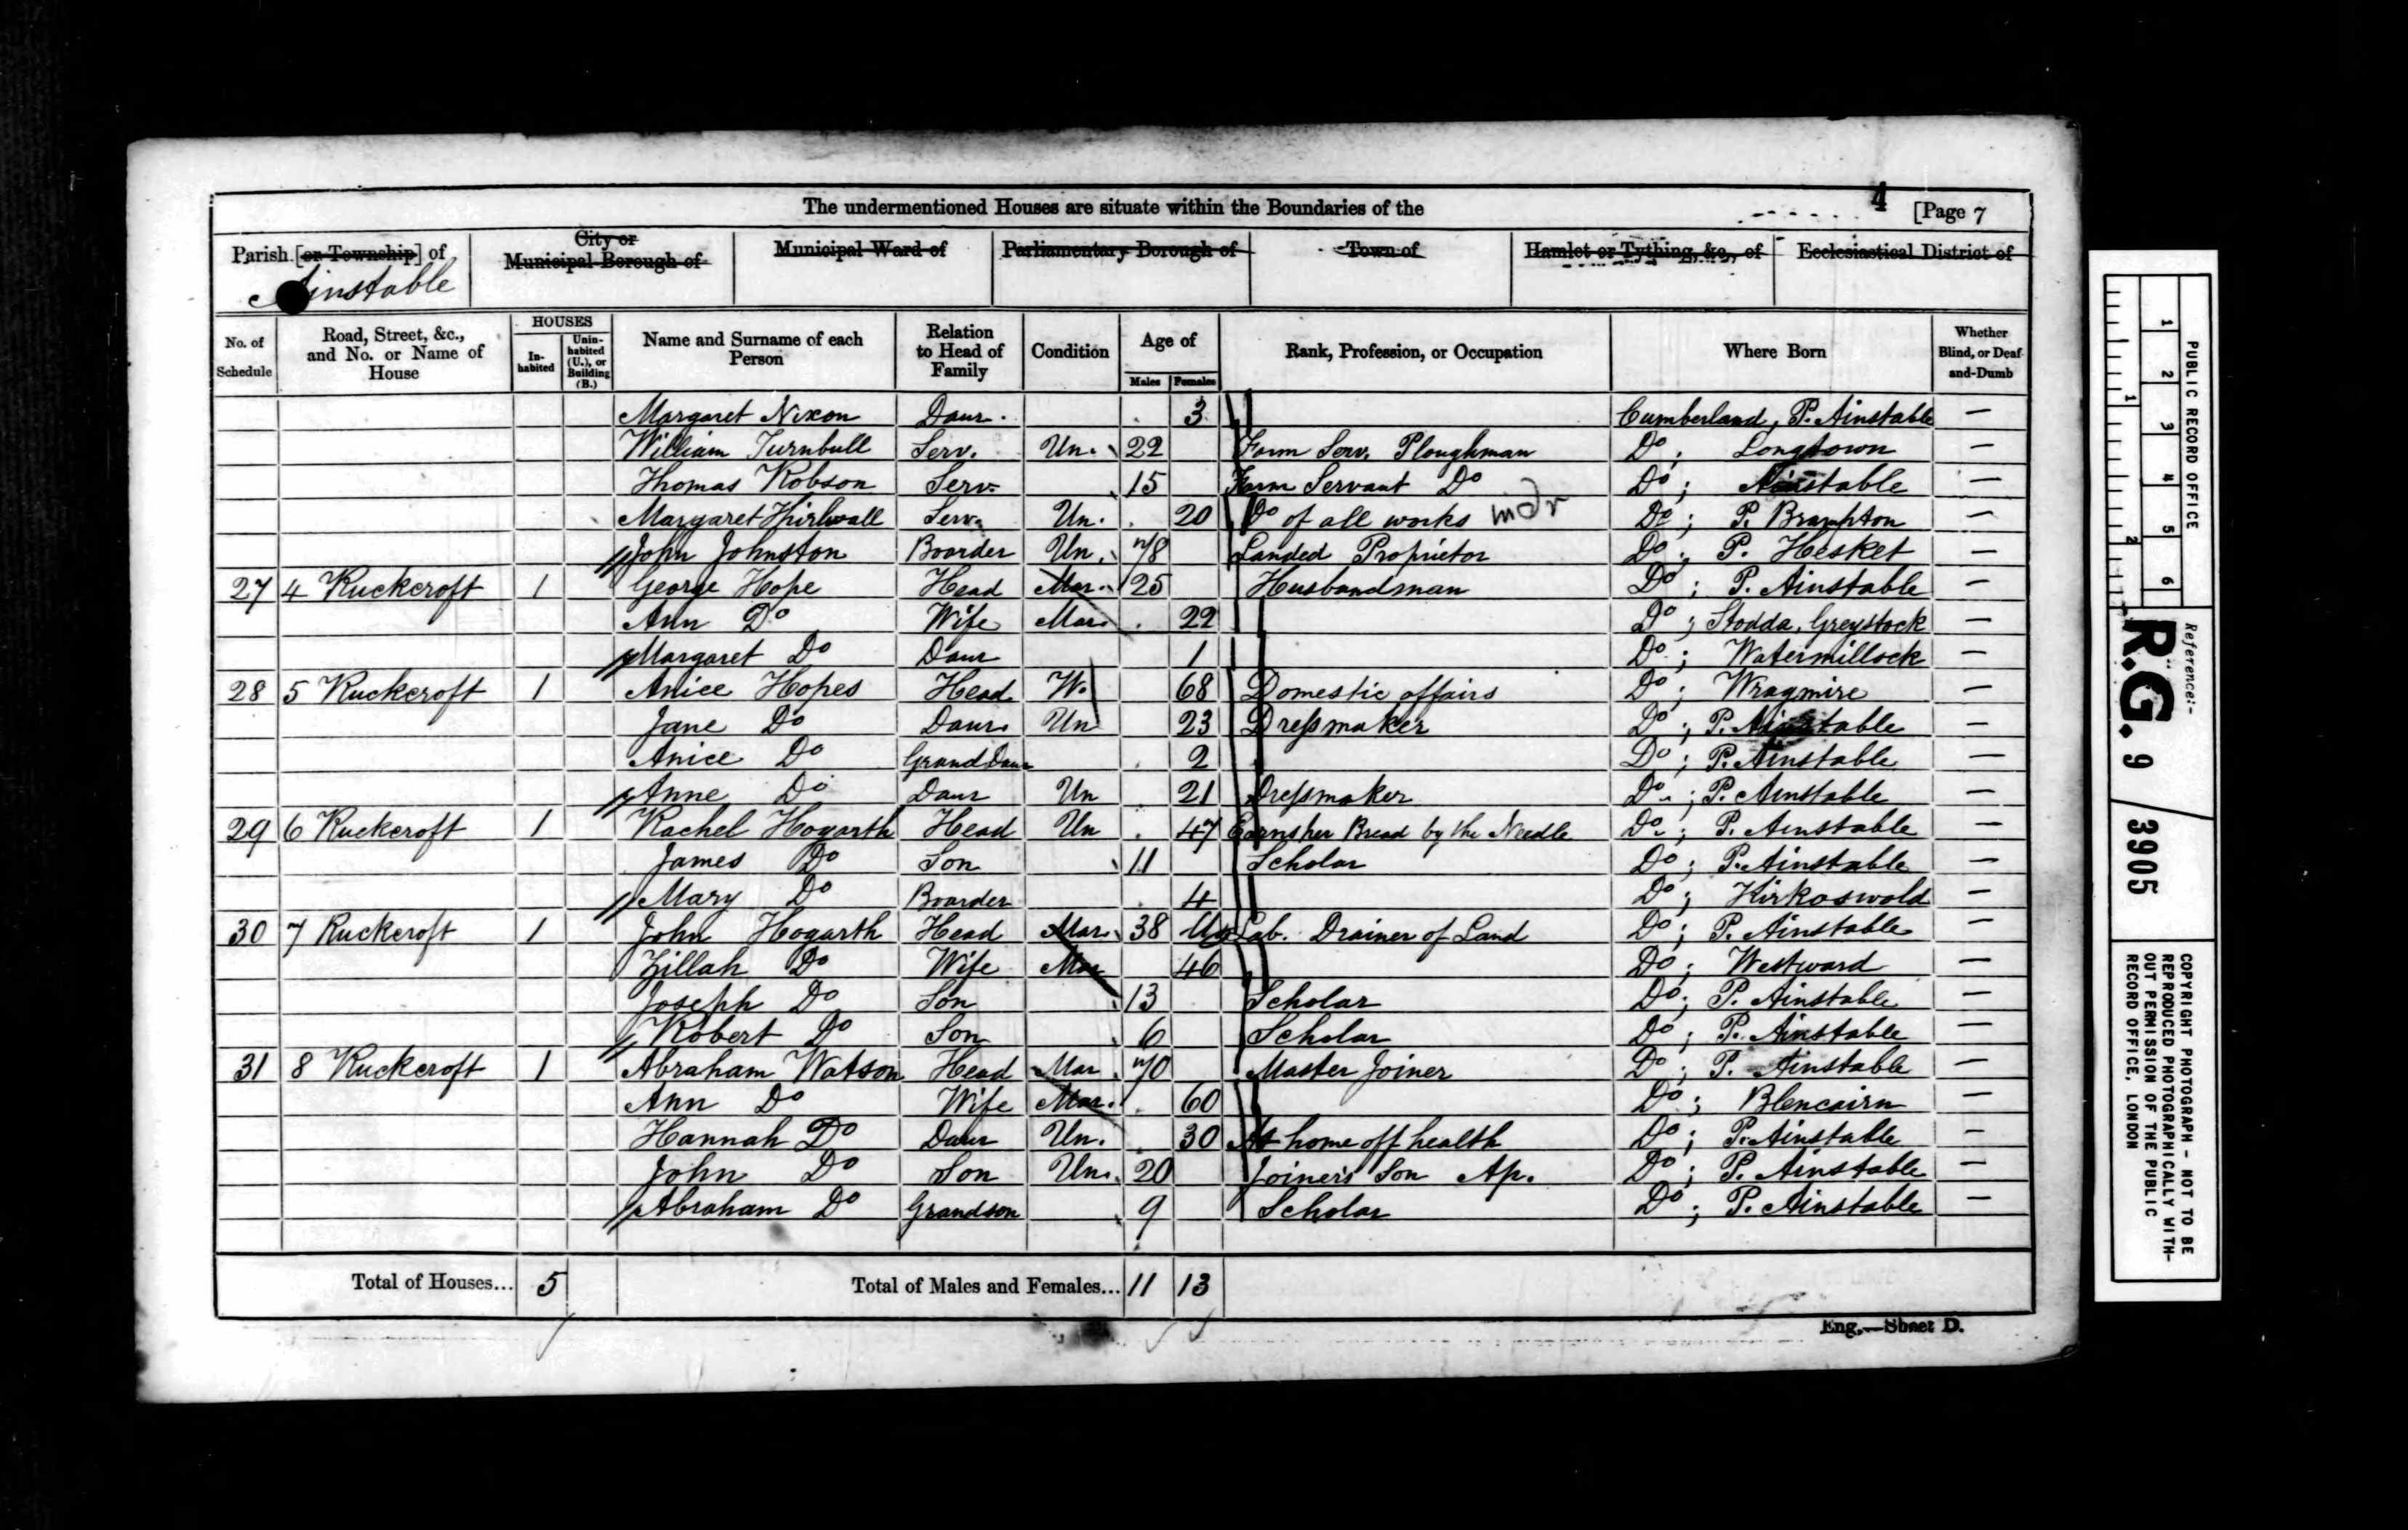 The undermentioned Houses are situate within the Boundaries of the
4 [Page 7
Parish [or Township] of Ainstable
City or Municipal Borough of
Municipal Ward of
Parliamentary Borough of
Town of
Hamlet or Tything, &c., of
Ecclesiastical District of
No. of Schedule
Road, Street, &c., and No. or Name of House
HOUSES
In-habited
Unin-habited (U.), or Building (B.)
Name and Surname of each Person
Relation to Head of Family
Condition
Age of
Males Females
Rank, Profession, or Occupation
Where Born
Whether Blind, or Deaf-and-Dumb
Margaret Nixon Daur. 3 Cumberland, P. Ainstable —
William Turnbull Serv. Un. 22 Farm Serv. Ploughman Do ; Longtown —
Thomas Robson Serv. 15 Farm Servant Do Do ; Ainstable —
Margaret Hirlwall Serv. Un. 20 Do of all works Do ; P. Brampton —
John Johnston Boarder Un. 78 Landed Proprietor Do ; P. Hesket —
27 4 Ruckcroft 1 George Hope Head Mar. 25 Husbandman Do ; P. Ainstable —
Ann Do Wife Mar. 22 Do ; Stodda, Greystock —
Margaret Do Daur 1 Do ; Watermillock —
28 5 Ruckcroft 1 Anice Hopes Head W. 68 Domestic affairs Do ; Wragmire —
Jane Do Daur. Un 23 Dressmaker Do ; P. Ainstable —
Anice Do Grand Daur 2 Do ; P. Ainstable —
Anne Do Daur Un 21 Dressmaker Do ; P. Ainstable —
29 6 Ruckcroft 1 Rachel Hogarth Head Un 47 Earns her Bread by the Needle Do ; P. Ainstable —
James Do Son 11 Scholar Do ; P. Ainstable —
Mary Do Boarder 4 Do ; Kirkoswold —
30 7 Ruckcroft 1 John Hogarth Head Mar. 38 Lab. Drainer of Land Do ; P. Ainstable —
Zillah Do Wife Mar 46 Do ; Westward —
Joseph Do Son 13 Scholar Do ; P. Ainstable —
Robert Do Son 6 Scholar Do ; P. Ainstable —
31 8 Ruckcroft 1 Abraham Watson Head Mar 70 Master Joiner Do ; P. Ainstable —
Ann Do Wife Mar. 60 Do ; Blencairn —
Hannah Do Daur Un. 30 At home off health Do ; P. Ainstable —
John Do Son Un. 20 Joiner's Son Ap. Do ; P. Ainstable —
Abraham Do Grandson 9 Scholar Do ; P. Ainstable —
Total of Houses... 5 Total of Males and Females... 11 13
Eng.—Sheet D.
PUBLIC RECORD OFFICE
1 2 3 4 5 6
1 2
Reference:-
R.G. 9 / 3905
COPYRIGHT PHOTOGRAPH - NOT TO BE
REPRODUCED PHOTOGRAPHICALLY WITH-
OUT PERMISSION OF THE PUBLIC
RECORD OFFICE, LONDON